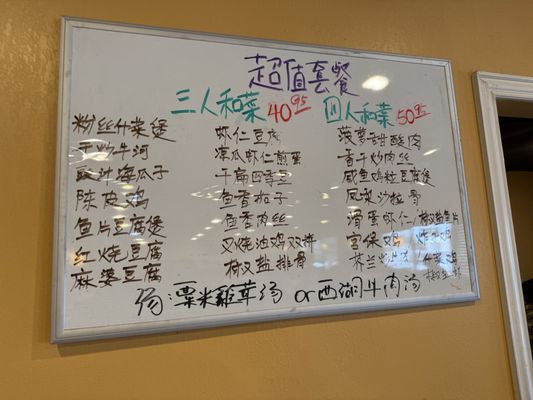 超值套餐
三人和菜 40.95 四人和菜 50.95
粉丝什菜煲
干炒牛河
豉汁海瓜子
陈皮鸡
鱼片豆腐煲
红烧豆腐
麻婆豆腐
虾仁豆腐
凉瓜虾仁煎蛋
干扁四季豆
鱼香茄子
鱼香肉丝
叉烧油鸡双拼
椒盐排骨
菠萝甜酸肉
香干炒肉丝
咸鱼鸡粒豆腐煲
凤梨沙拉骨
滑蛋虾仁/椒盐鱼片
宫保鸡
芥兰炒
汤:粟米雞茸汤 or 西湖牛肉汤